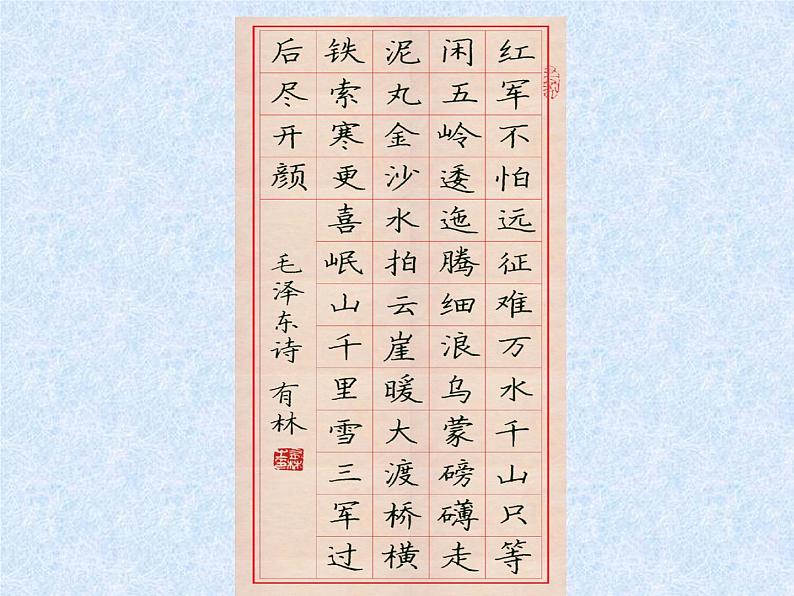 红军不怕远征难万水千山只等
闲五岭逶迤腾细浪乌蒙磅礴走
泥丸金沙水拍云崖暖大渡桥横
铁索寒更喜岷山千里雪三军过
后尽开颜
毛泽东诗 有林